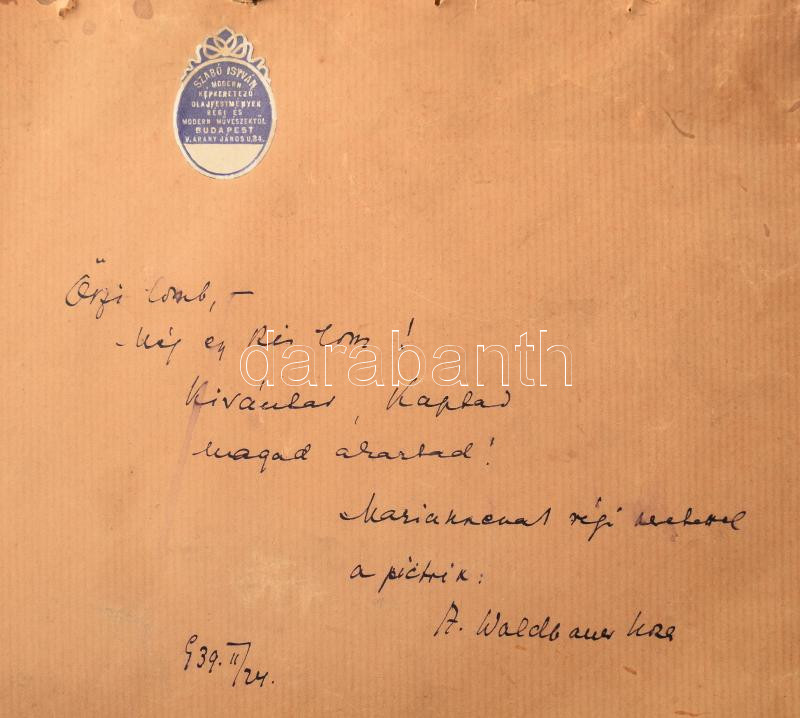 SZABÓ ISTVÁN
MODERN
KÉPKERETEZŐ
OLAJFESTMÉNYEK
RÉGI ÉS
MODERN MŰVÉSZEKTŐL
BUDAPEST
V. ARANY JÁNOS U. 34.
Őszi lomb, —
Még egy kis lom!
darabanth
Kivántad, Kaptad
magad akartad!
régi szeretettel
a pictrix:
A. Waldbauer
939. II/24.